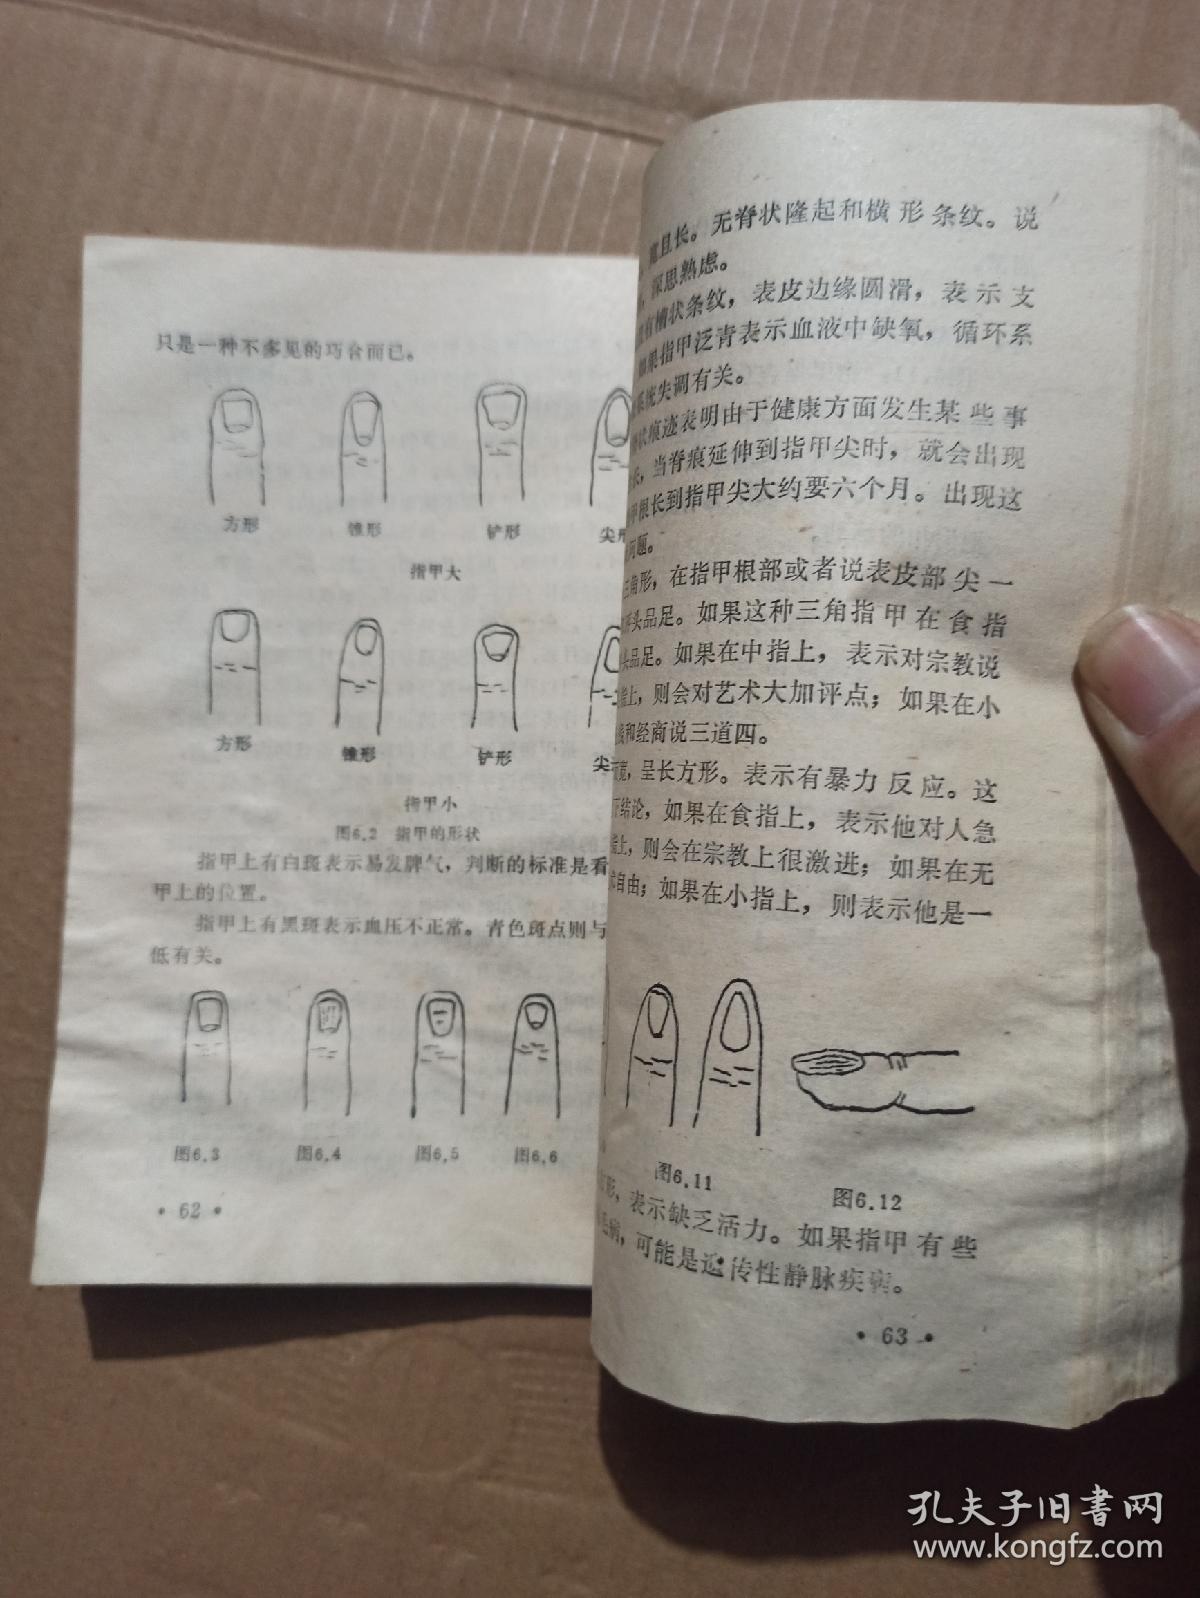 只是一种不多见的巧合而已。
方形
锥形
铲形
尖形
指甲大
方形
锥形
铲形
尖
指甲小
图6.2 指甲的形状
指甲上有白斑表示易发脾气，判断的标准是看
甲上的位置。
指甲上有黑斑表示血压不正常。青色斑点则与
低有关。
图6.3
图6.4
图6.5
图6.6
• 62 •
宽且长。无脊状隆起和横形条纹。说
，深思熟虑。
有槽状条纹，表皮边缘圆滑，表示支
如果指甲泛青表示血液中缺氧，循环系
系统失调有关。
状痕迹表明由于健康方面发生某些事
长，当脊痕延伸到指甲尖时，就会出现
甲根长到指甲尖大约要六个月。出现这
问题。
三角形，在指甲根部或者说表皮部尖一
评头品足。如果这种三角指甲在食指
头品足。如果在中指上，表示对宗教说
指上，则会对艺术大加评点；如果在小
和经商说三道四。
而宽，呈长方形。表示有暴力反应。这
下结论，如果在食指上，表示他对人急
指上，则会在宗教上很激进；如果在无
术自由；如果在小指上，则表示他是一
图6.11
图6.12
形，表示缺乏活力。如果指甲有些
毛病，可能是遗传性静脉疾病。
• 63 •
孔夫子旧书网
www.kongfz.com